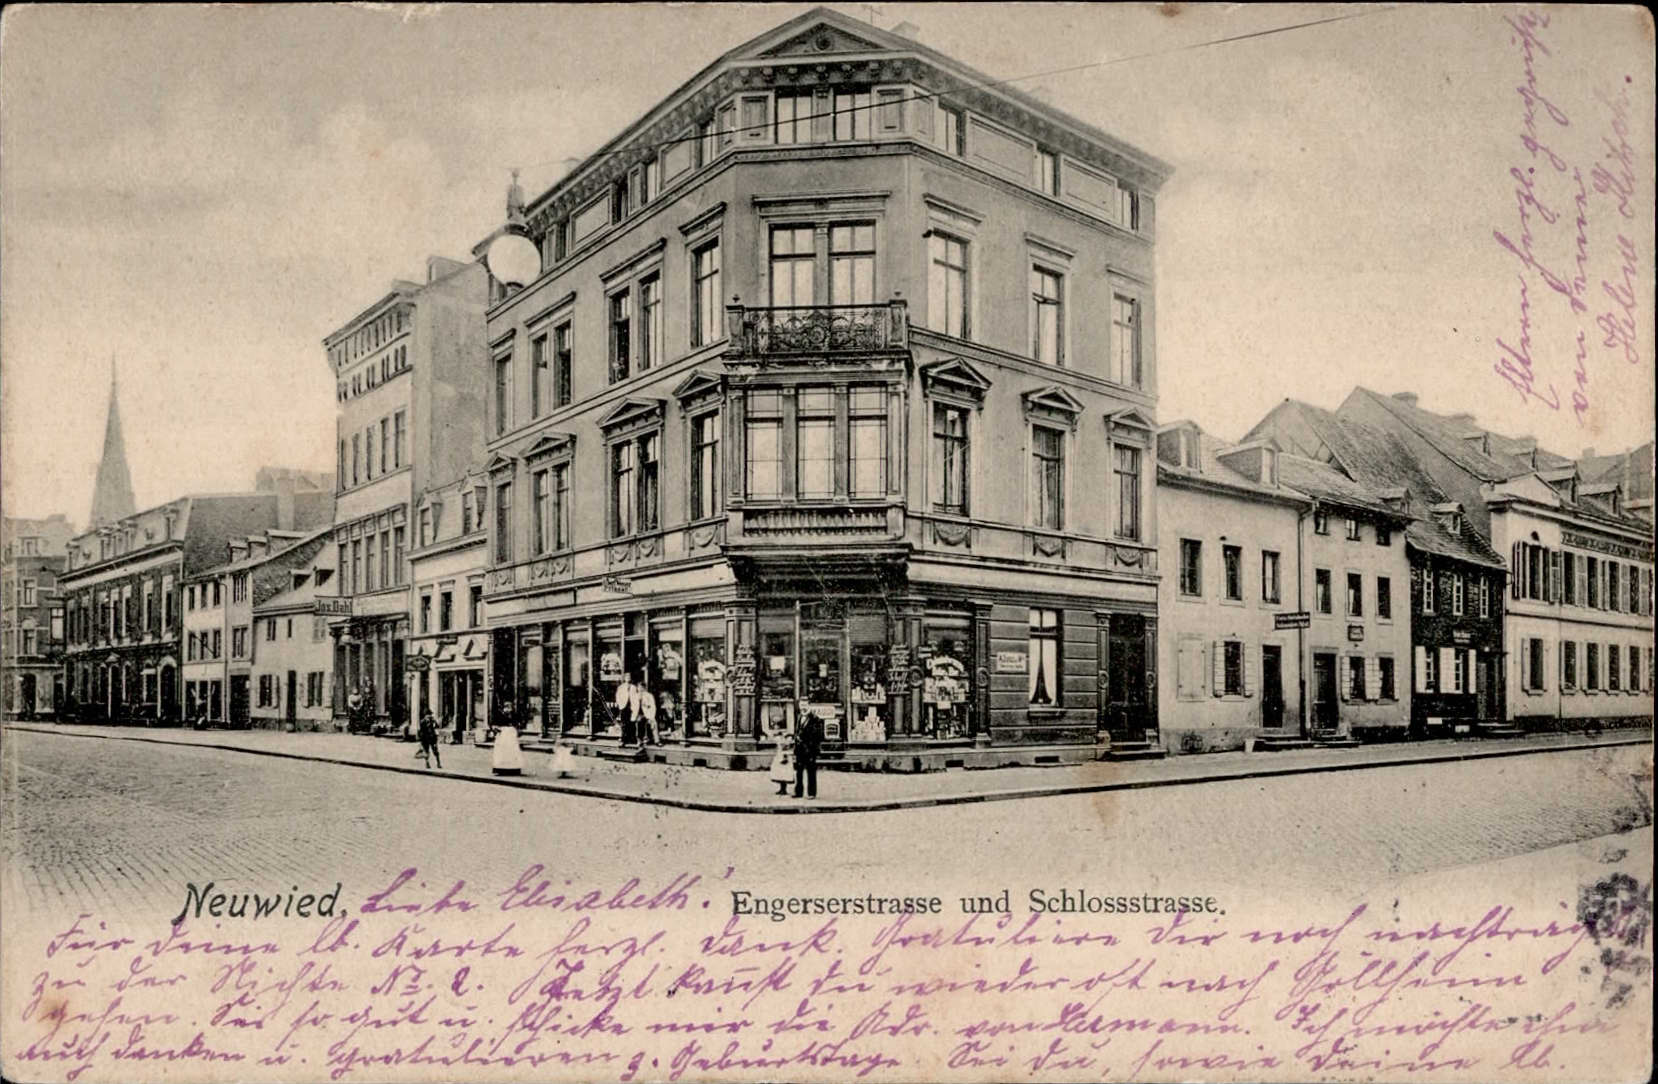 Jos. Dahl
Neuwied. Liebe Elisabeth! Engerserstrasse und Schlossstrasse.
Für deine lb. Karte herzl. Dank. Gratuliere Dir noch nachträgl.
zu der Nichte No. 2. Jetzt kannst du wieder oft nach Göllheim
gehen. Sei so gut u. schicke mir die Adr. von Hermann. Ich möchte ihm
auch danken u. gratulieren z. Geburtstage. Sei du, sowie deine lb.
Eltern herzl. gegrüßt
von deiner
Helene